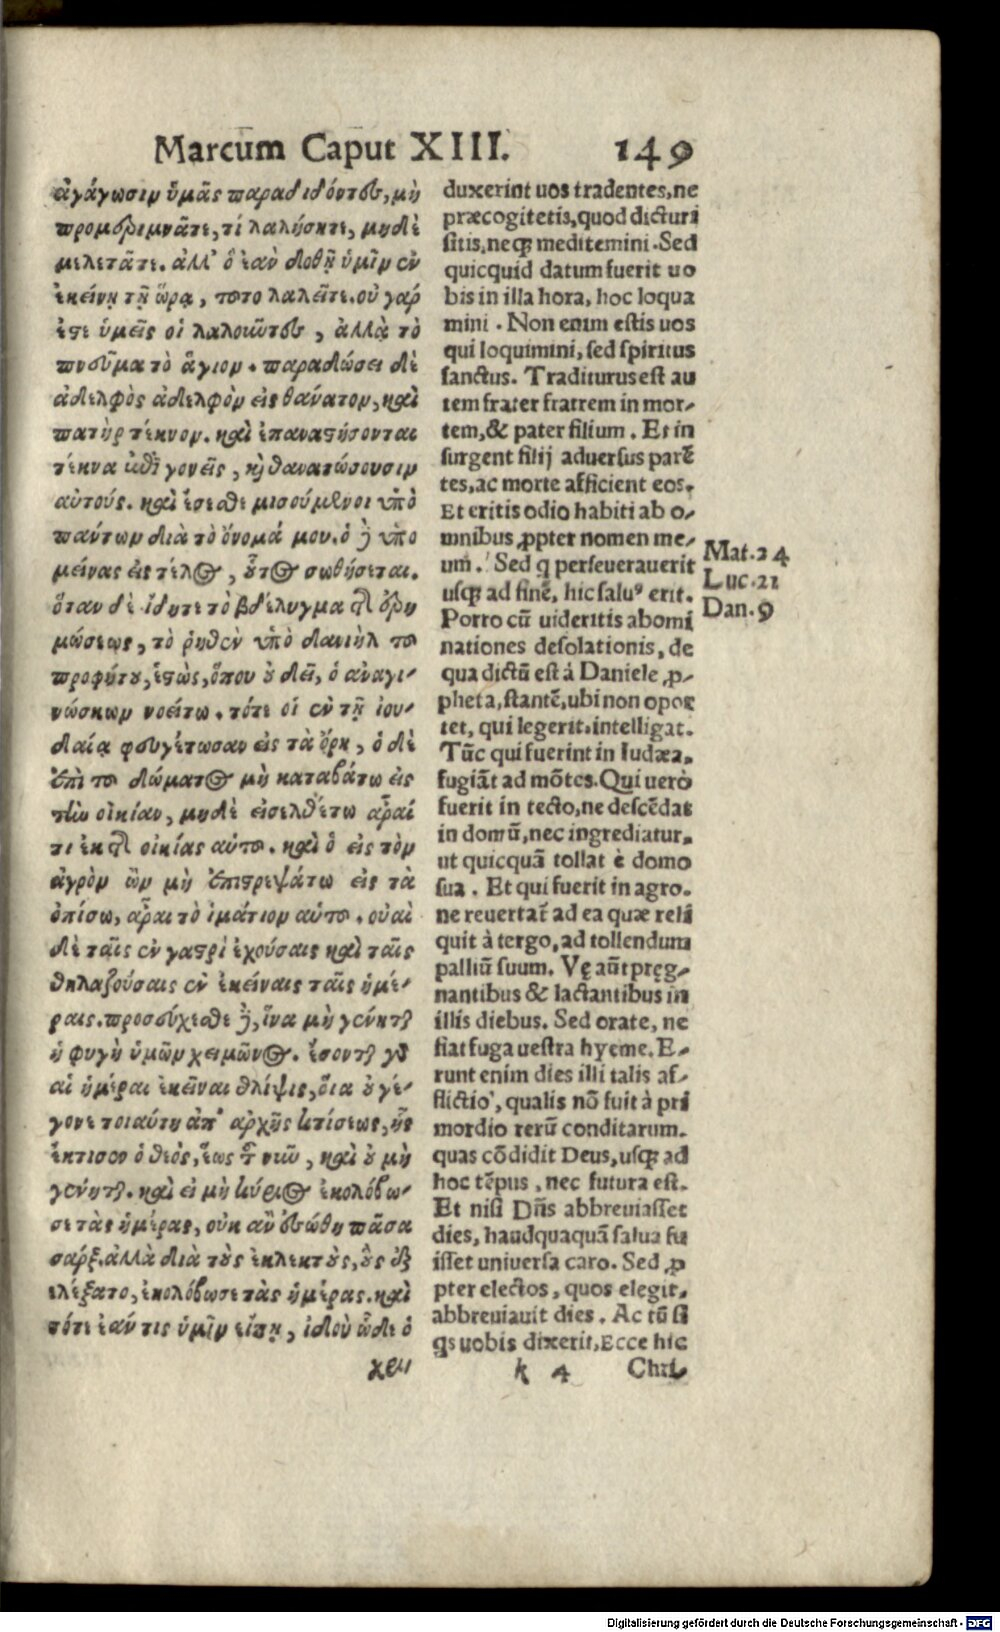 Marcum Caput XIII. 149
ἀγάγωσιν ὑμᾶς παραδιδόντες, μὴ
προμεριμνᾶτε, τί λαλήσητε, μηδὲ
μελετᾶτε. ἀλλ' ὃ ἐὰν δοθῇ ὑμῖν ἐν
ἐκείνῃ τῇ ὥρᾳ, τοῦτο λαλεῖτε. οὐ γάρ
ἐστε ὑμεῖς οἱ λαλοῦντες, ἀλλὰ τὸ
πνεῦμα τὸ ἅγιον. παραδώσει δὲ
ἀδελφὸς ἀδελφὸν εἰς θάνατον, καὶ
πατὴρ τέκνον. καὶ ἐπαναστήσονται
τέκνα ἐπὶ γονεῖς, καὶ θανατώσουσιν
αὐτούς. καὶ ἔσεσθε μισούμενοι ὑπὸ
πάντων διὰ τὸ ὄνομά μου. ὁ δὲ ὑπο
μείνας εἰς τέλος, οὗτος σωθήσεται.
ὅταν δὲ ἴδητε τὸ βδέλυγμα τῆς ἐρη
μώσεως, τὸ ῥηθὲν ὑπὸ δανιὴλ τοῦ
προφήτου, ἑστὼς, ὅπου οὐ δεῖ, ὁ ἀναγι-
νώσκων νοείτω. τότε οἱ ἐν τῇ ἰου-
δαίᾳ φευγέτωσαν εἰς τὰ ὄρη, ὁ δὲ
ἐπὶ τοῦ δώματος μὴ καταβάτω εἰς
τὴν οἰκίαν, μηδὲ εἰσελθέτω ἆραί
τι ἐκ τῆς οἰκίας αὐτοῦ. καὶ ὁ εἰς τὸν
ἀγρὸν ὢν μὴ ἐπιστρεψάτω εἰς τὰ
ὀπίσω, ἆραι τὸ ἱμάτιον αὐτοῦ. οὐαὶ
δὲ ταῖς ἐν γαστρὶ ἐχούσαις καὶ ταῖς
θηλαζούσαις ἐν ἐκείναις ταῖς ἡμέ-
ραις. προσεύχεσθε δὲ, ἵνα μὴ γένηται
ἡ φυγὴ ὑμῶν χειμῶνος. ἔσονται γὰρ
αἱ ἡμέραι ἐκεῖναι θλίψις, οἵα οὐ γέ-
γονε τοιαύτη ἀπ' ἀρχῆς κτίσεως, ἧς
ἔκτισεν ὁ θεὸς, ἕως τοῦ νῦν, καὶ οὐ μὴ
γένηται. καὶ εἰ μὴ κύριος ἐκολόβω-
σε τὰς ἡμέρας, οὐκ ἂν ἐσώθη πᾶσα
σάρξ. ἀλλὰ διὰ τοὺς ἐκλεκτοὺς, οὓς ἐξ
ελέξατο, ἐκολόβωσε τὰς ἡμέρας. καὶ
τότε ἐάν τις ὑμῖν εἴπῃ, ἰδοὺ ὧδε ὁ
χρι
duxerint uos tradentes, ne
præcogitetis, quod dicturi
sitis, neq; meditemini. Sed
quicquid datum fuerit uo
bis in illa hora, hoc loqua
mini. Non enim estis uos
qui loquimini, sed spiritus
sanctus. Traditurus est au
tem frater fratrem in mor-
tem, & pater filium. Et in
surgent filij aduersus parẽ
tes, ac morte afficient eos.
Et eritis odio habiti ab o-
mnibus ꝓpter nomen me-
um. Sed q perseuerauerit
usq; ad finẽ, hic saluꝰ erit.
Porro cũ uideritis abomi
nationes desolationis, de
qua dictũ est à Daniele ꝓ-
pheta, stantẽ, ubi non opor
tet, qui legerit, intelligat.
Tũc qui fuerint in Iudæa,
fugiãt ad mõtes. Qui uerò
fuerit in tecto, ne descẽdat
in domũ, nec ingrediatur,
ut quicquã tollat è domo
sua. Et qui fuerit in agro,
ne reuertat̃ ad ea quæ reli
quit à tergo, ad tollendum
palliũ suum. Vę aũt pręg-
nantibus & lactantibus in
illis diebus. Sed orate, ne
fiat fuga uestra hyeme. E-
runt enim dies illi talis af-
flictio, qualis nõ fuit à pri
mordio rerũ conditarum,
quas cõdidit Deus, usq; ad
hoc tẽpus, nec futura est.
Et nisi Dñs abbreuiasset
dies, haudquaquã salua fu
isset uniuersa caro. Sed ꝓ
pter electos, quos elegit,
abbreuiauit dies. Ac tũ si
qs uobis dixerit, Ecce hic
k 4 Chri-
Mat. 24
Luc. 21
Dan. 9
Digitalisierung gefördert durch die Deutsche Forschungsgemeinschaft - DFG